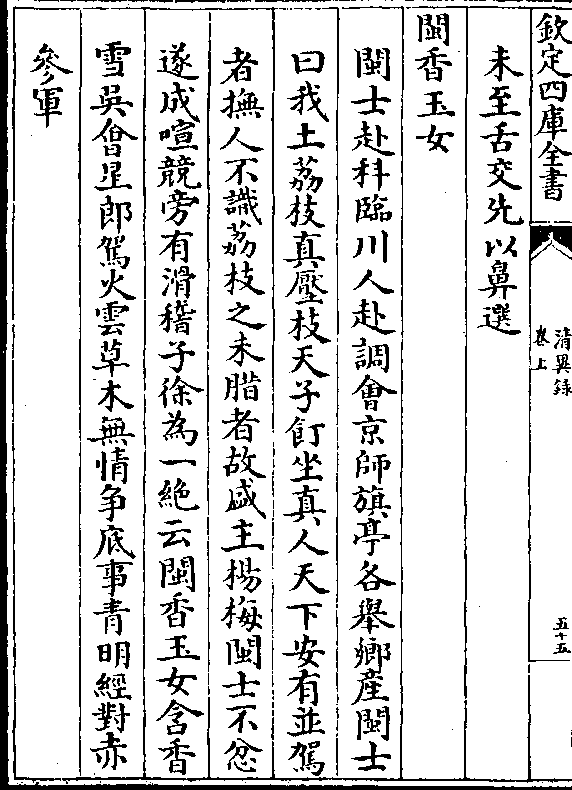 欽定四庫全書
清異録
卷上
五十五
未至舌交先以鼻選
閩香玉女
閩士赴科臨川人赴調會京師旗亭各舉鄉産閩士
曰我土荔枝真壓枝天子飣坐真人天下安有並駕
者撫人不識荔枝之未腊者故盛主楊梅閩士不忿
遂成喧競旁有滑稽子徐為一絶云閩香玉女含香
雪吳僧星郎駕火雲草木無情争底事青明經對赤
參軍